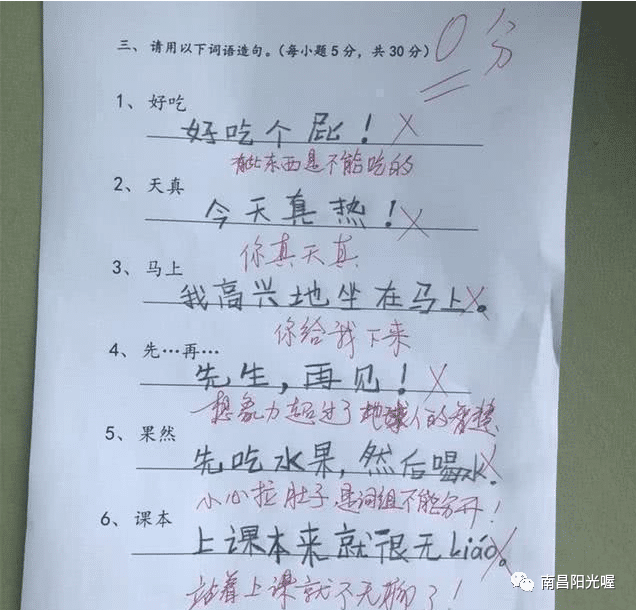 三、请用以下词语造句。（每小题5分，共30分）
0分
1、好吃
好吃个屁！
有些东西是不能吃的
2、天真
今天真热！
你真天真
3、马上
我高兴地坐在马上。
你给我下来
4、先…再…
先生，再见！
想象力超过了地球人的智慧
5、果然
先吃水果，然后喝水.
小心拉肚子,是词组不能分开！
6、课本
上课本来就很无liáo。
站着上课就不无聊了！
南昌阳光喔